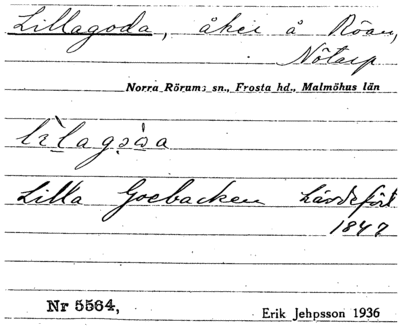 Lillagoda, åker å Röan,
Nötarp
Norra Rörums sn., Frosta hd., Malmöhus län
Lilla Goebacken hävdefört
1847
Nr 5564,
Erik Jehpsson 1936